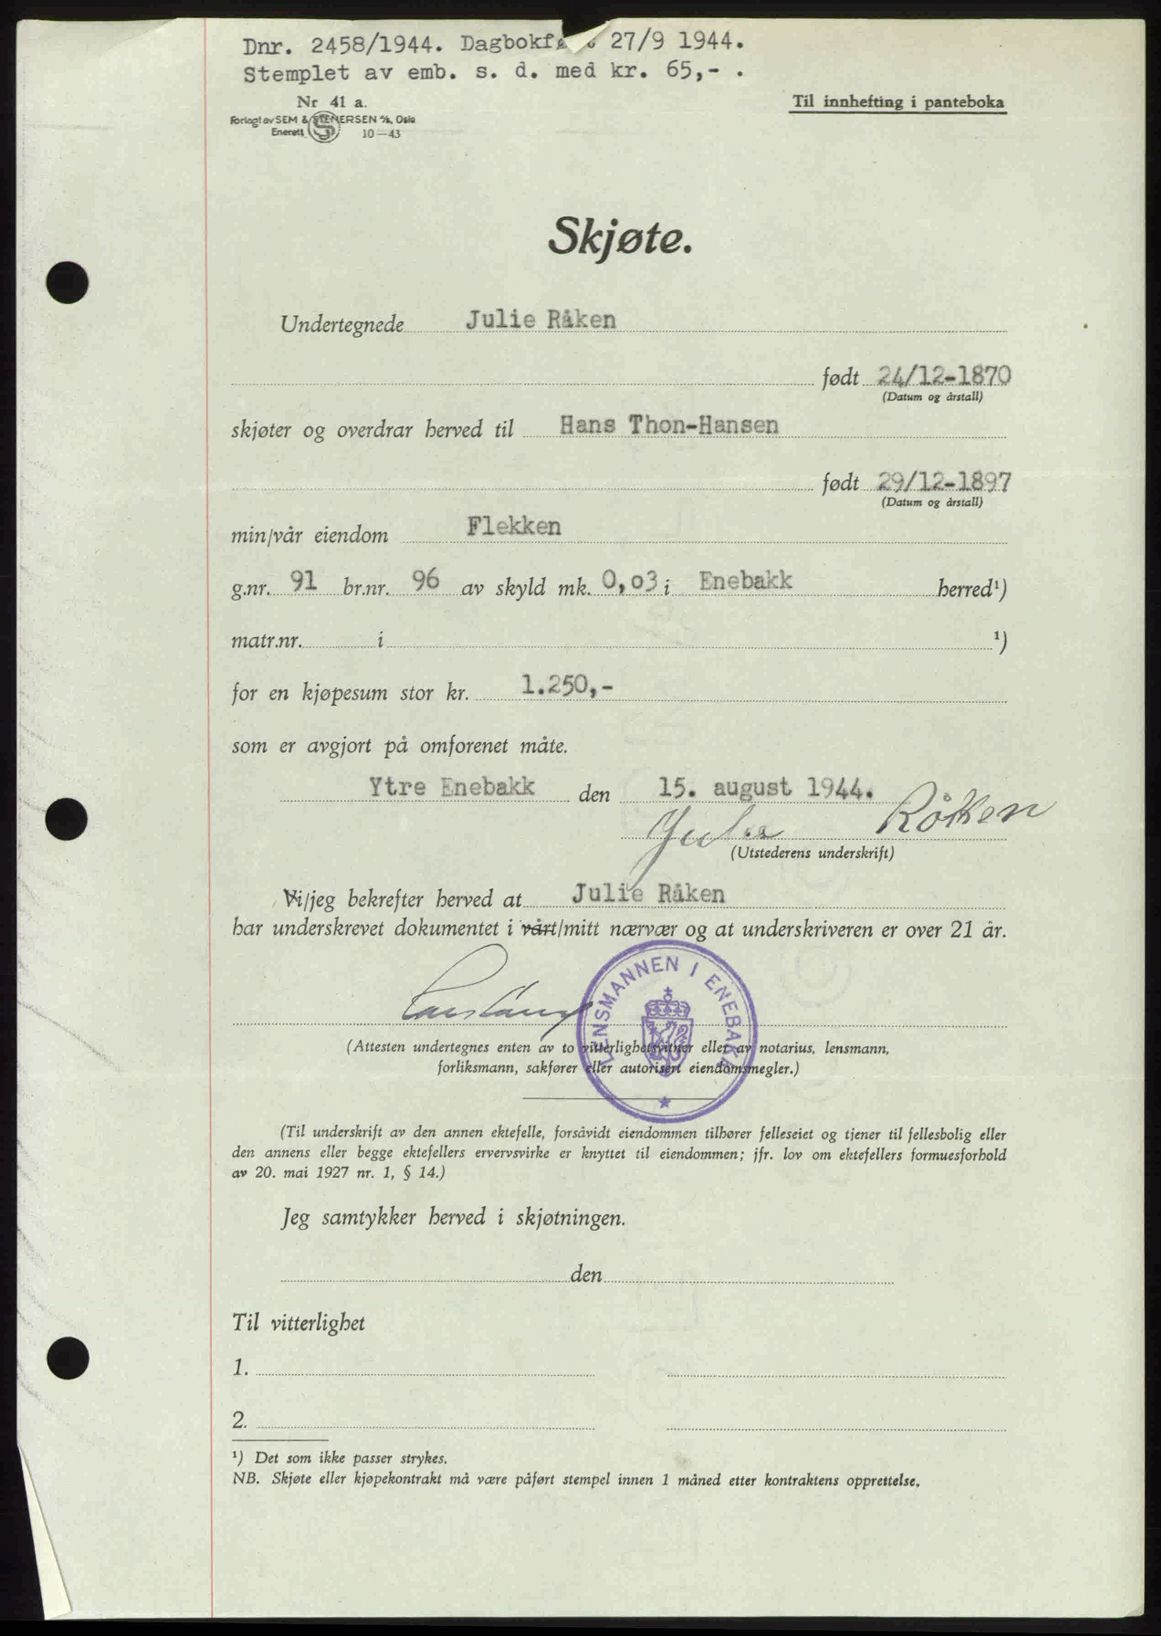 Dnr. 2458/1944. Dagbokf 27/9 1944.
Stemplet av emb. s. d. med kr. 65,- .
Nr 41 a.
Til innhefting i panteboka
Forlagt av SEM & STENERSEN A/S, Oslo
Enerett S 10-43
Skjøte.
Undertegnede Julie Råken
født 24/12-1870
(Datum og årstall)
skjøter og overdrar herved til Hans Thon-Hansen
født 29/12-1897
(Datum og årstall)
min/vår eiendom Flekken
g.nr. 91 br.nr. 96 av skyld mk. 0,o3 i Enebakk herred¹)
matr.nr. i ¹)
for en kjøpesum stor kr. 1.250,-
som er avgjort på omforenet måte.
Ytre Enebakk den 15. august 1944.
Julie Råken
(Utstederens underskrift)
Vi/jeg bekrefter herved at Julie Råken
har underskrevet dokumentet i vårt/mitt nærvær og at underskriveren er over 21 år.
LENSMANNEN I ENEBAKK
(Attesten undertegnes enten av to vitterlighetsvitner eller av notarius, lensmann,
forliksmann, sakfører eller autorisert eiendomsmegler.)
(Til underskrift av den annen ektefelle, forsåvidt eiendommen tilhører felleseiet og tjener til fellesbolig eller
den annens eller begge ektefellers ervervsvirke er knyttet til eiendommen; jfr. lov om ektefellers formuesforhold
av 20. mai 1927 nr. 1, § 14.)
Jeg samtykker herved i skjøtningen.
den
Til vitterlighet
1.
2.
¹) Det som ikke passer strykes.
NB. Skjøte eller kjøpekontrakt må være påført stempel innen 1 måned etter kontraktens opprettelse.